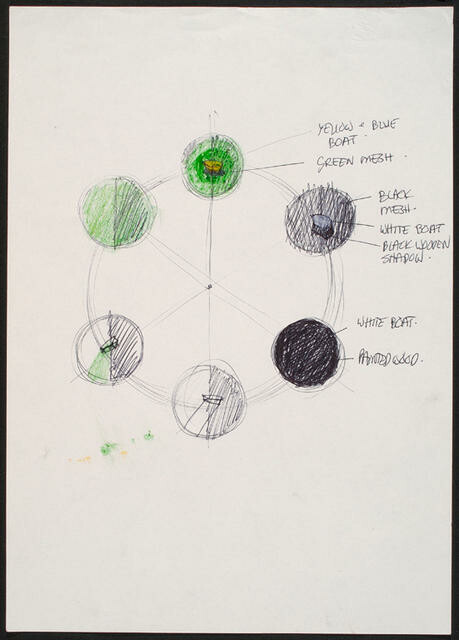 YELLOW + BLUE
BOAT.
GREEN MESH.
BLACK
MESH.
WHITE BOAT
BLACK WOODEN
SHADOW.
WHITE BOAT.
PAINTED WOOD.